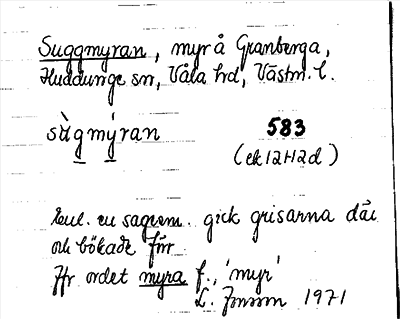 Suggmyran, myr å Granberga,
Huddunge sn, Våla hd, Västm. l.
sùgmýran 583
(ek 12H2d)
Enl. en sagesm. gick grisarna där
och bökade förr
Jfr ordet myra f., 'myr'
L. 1971